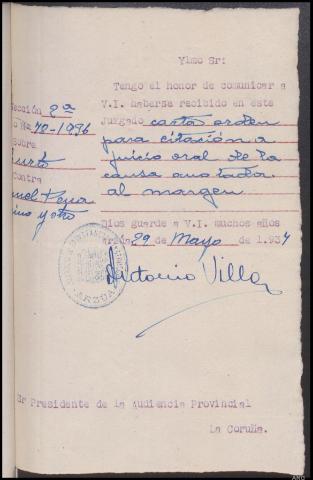 Ylmo Sr:
Tengo el honor de comunicar a
V.I. haberse recibido en este
Juzgado carta orden
para citación a
juicio oral de la
causa anotada
al margen
Dios guarde a V.I. muchos años
Arzúa 29 de Mayo de 1.934
Antonio Villa
ección 2ª
o Nº 70-1996
obre
urto
ontra
nuel Pena
ino y otro
ARZUA
Sr Presidente de la Audiencia Provincial
La Coruña.